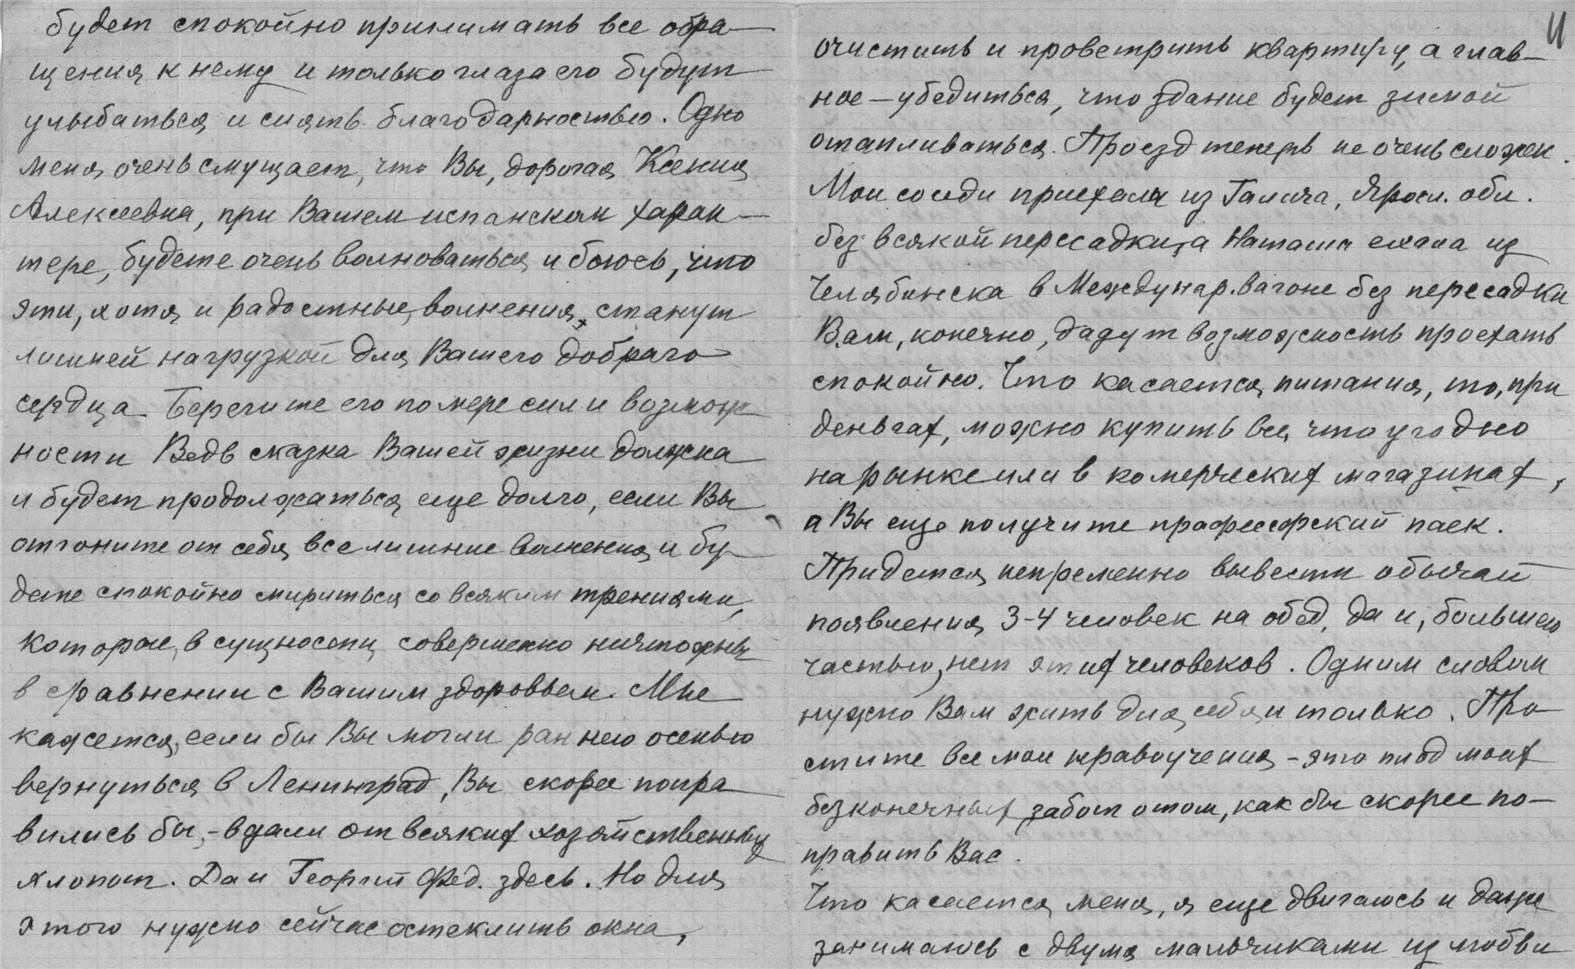 будет спокойно принимать все обра-
щения к нему и только глаза его будут
улыбаться и сиять благодарностью. Одно
меня очень смущает, что Вы, дорогая Ксения
Алексеевна, при Вашем испанском харак-
тере, будете очень волноваться и боюсь, что
эти, хотя и радостные, волнения, станут
лишней нагрузкой для Вашего добраго
сердца. Берегите его по мере сил и возмож
ности Ведь сказка Вашей жизни должна
и будет продолжаться еще долго, если Вы
отгоните от себя все лишние волнения и бу-
дете спокойно мириться со всяким трениями,
которые, в сущности, совершенно ничтожны
в сравнении с Вашим здоровьем. Мне
кажется, если бы Вы могли раннею осенью
вернуться в Ленинград, Вы скорее попра
вились бы, - вдали от всяких хозяйственных
хлопот. Да и Георгий Фед. здесь. Но для
этого нужно сейчас остеклить окна,
11
очистить и проветрить квартиру, а глав-
ное - убедиться, что здание будет зимой
отапливаться. Проезд теперь не очень сложен.
Мои соседи приехали из Галича, Яросл. обл.
без всякой пересадки, а Наташа ехала из
Челябинска в Междунар. вагоне без пересадки
Вам, конечно, дадут возможность проехать
спокойно. Что касается питания, то, при
деньгах, можно купить все, что угодно
на рынке или в комерческих магазинах,
а Вы еще получите професорский паек.
Придется непременно вывести обычай
появления 3-4 человек на обед, да и, большею
частью, нет этих человеков. Одним словом
нужно Вам жить для себя и только. Про
стите все мои нравоучения - это плод моих
безконечных забот о том, как бы скорее по-
править Вас.
Что касается меня, я еще двигаюсь и даже
занимаюсь с двумя мальчиками из любви